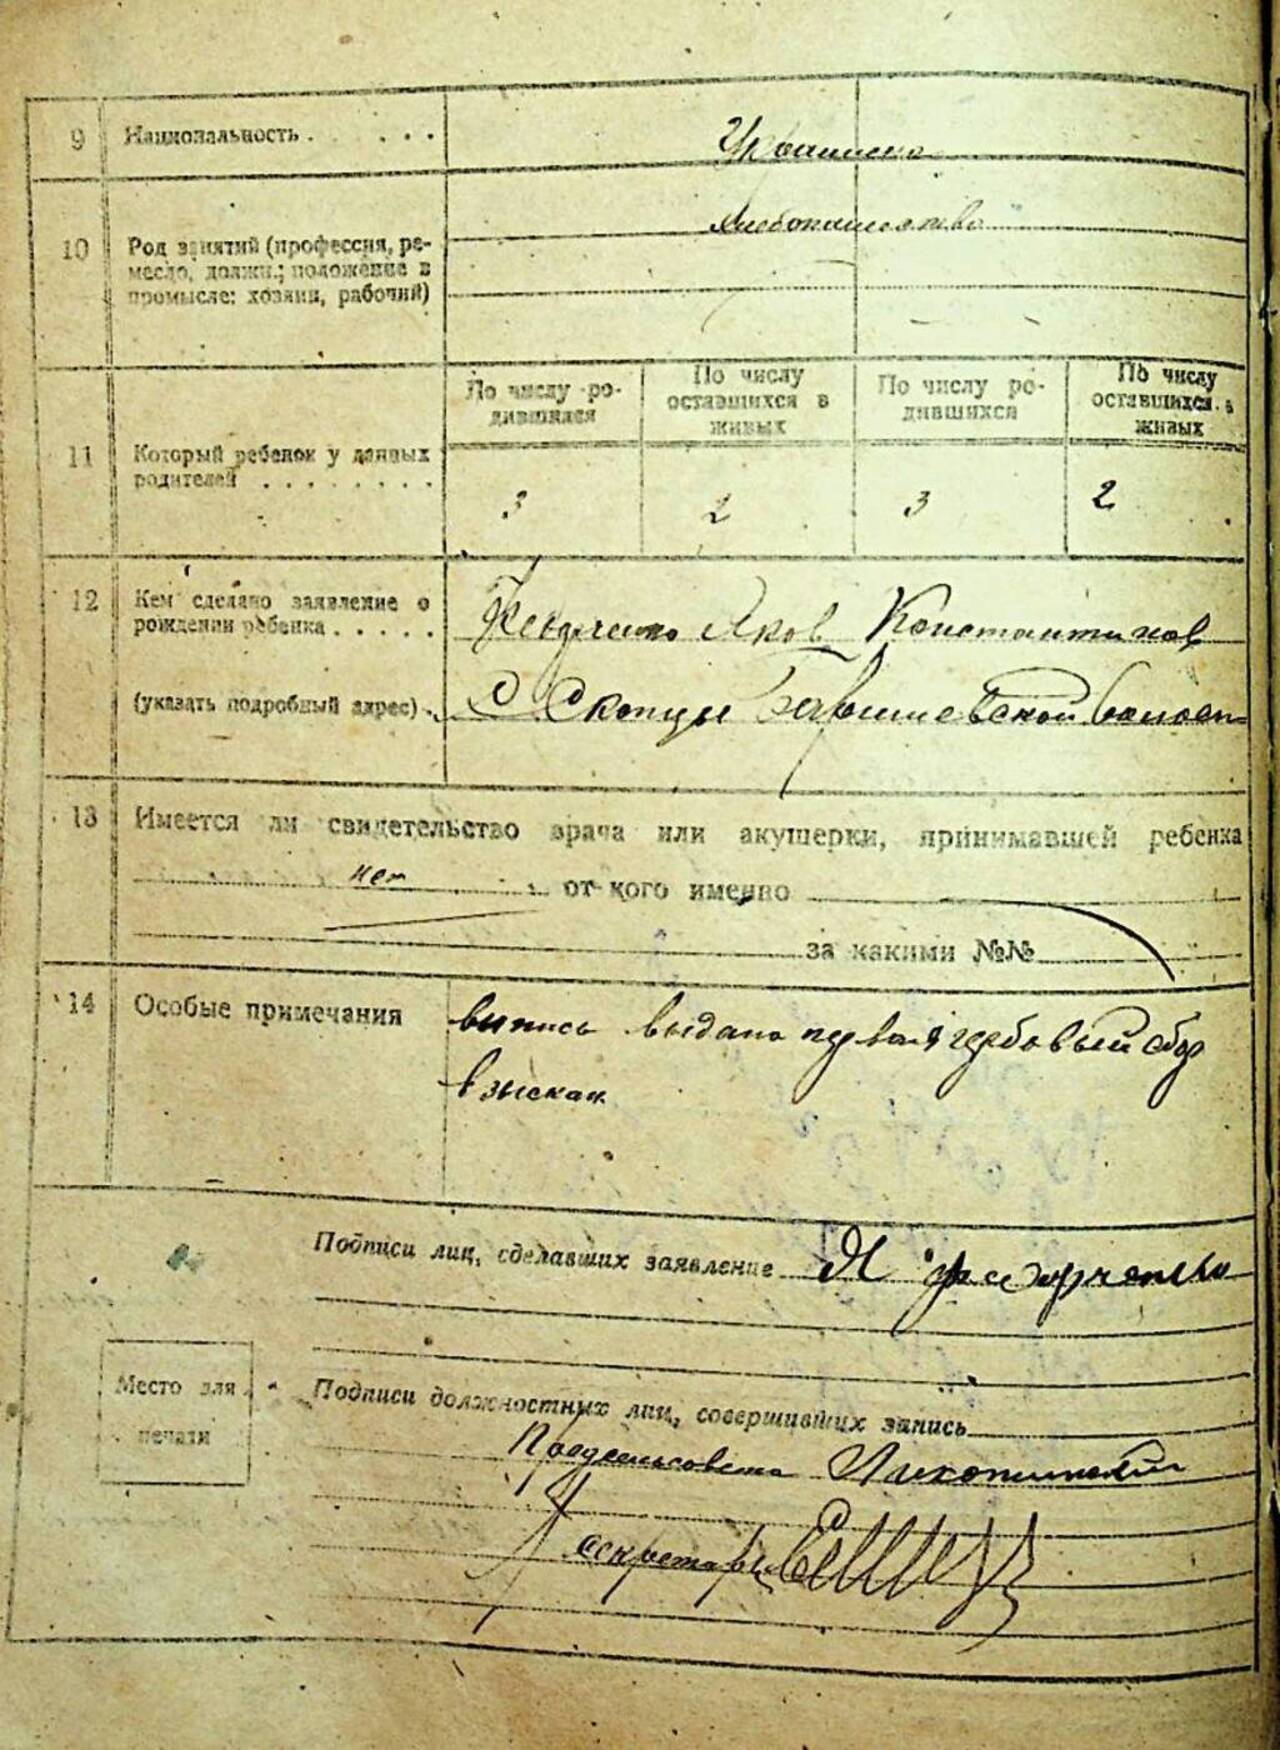 9 Национальность . . . . Украинска
10 Род занятий (профессия, ре-
месло, должн.; положение в
промысле: хозяин, рабочий)
хлебопашество
По числу ро-
дившихся
По числу
оставшихся в
живых
По числу ро-
дившихся
По числу
оставшихся в
живых
11 Который ребенок у данных
родителей . . . . . . . .
3 2 3 2
12 Кем сделано заявление о
рождении ребенка . . . . .
Яков Константинов
(указать подробный адрес) . С Скопцы волост
13 Имеется ли свидетельство врача или акушерки, принимавшей ребенка
нет от кого именно
за какими №№
14 Особые примечания
выпись выдана первая гербовый сбор
взыскан
Подписи лиц, сделавших заявление Я
Место для
печати
Подписи должностных лиц, совершивших запись
Предсельсовета
Секретарь